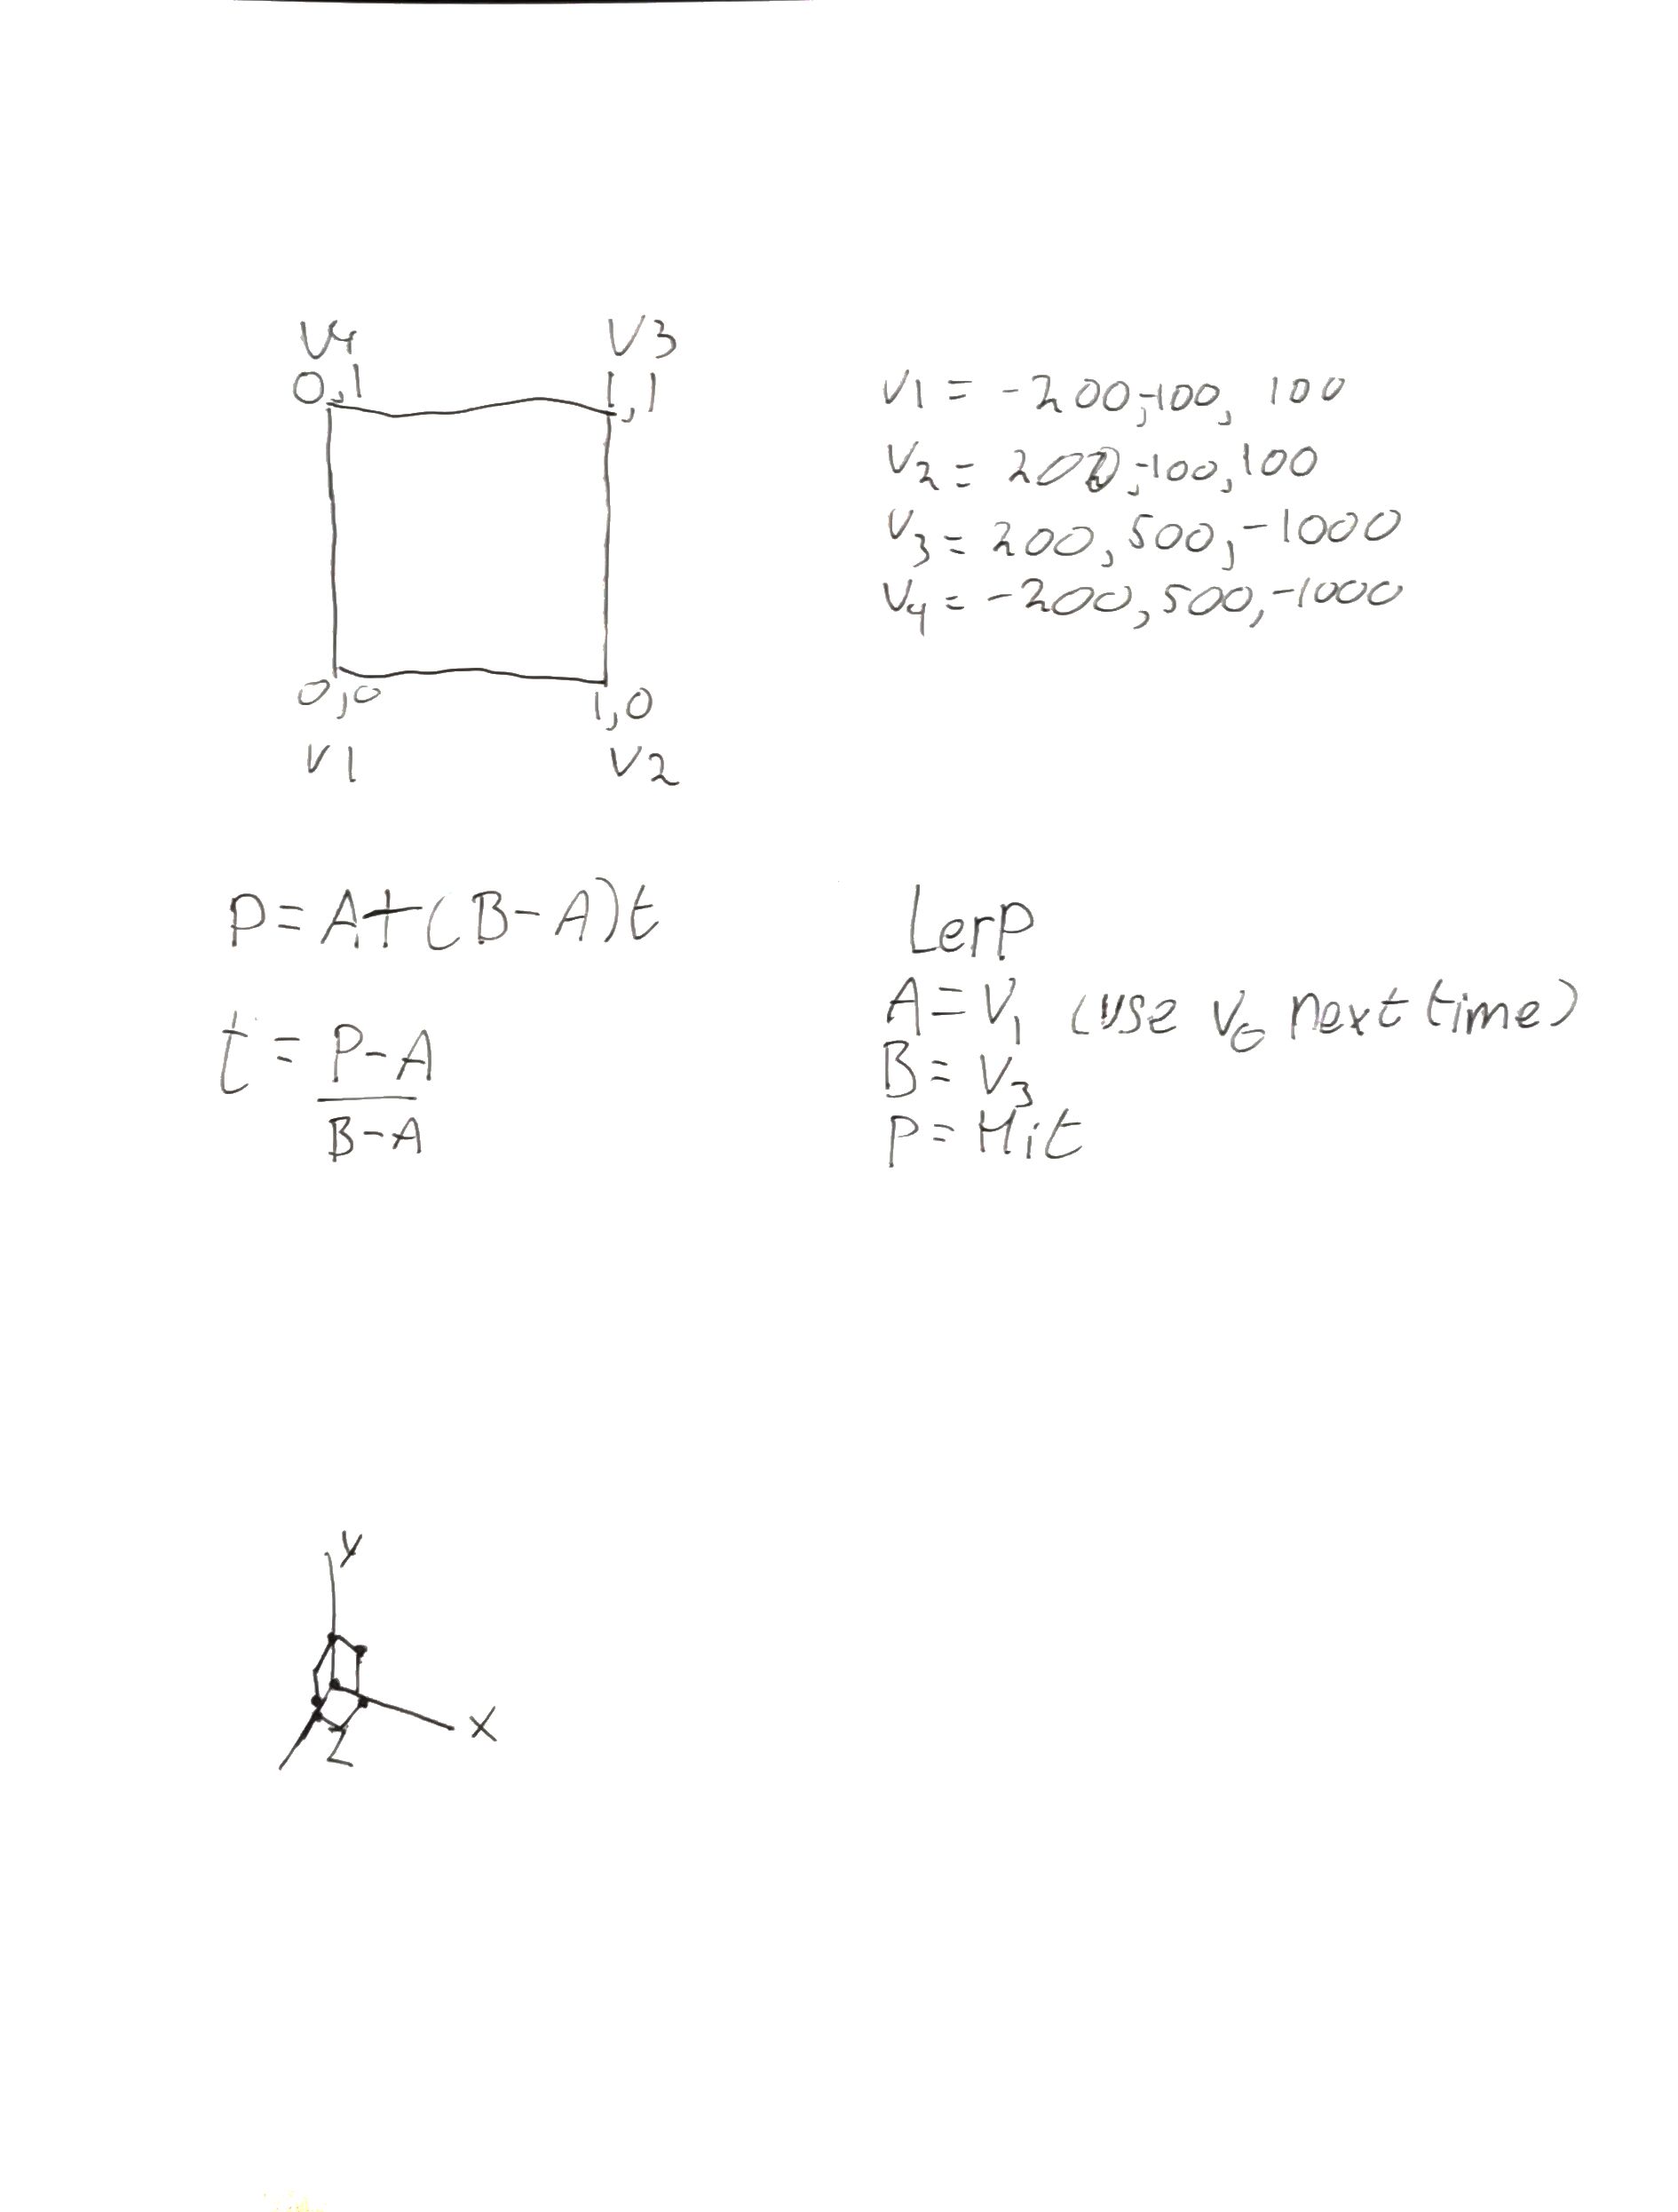 V4 V3
0,1 1,1
0,0 1,0
V1 V2
V1 = -200,-100, 100
V2 = 200,-100,100
V3 = 200,500,-1000
V4 = -200,500,-1000
P=A+(B-A)t
t = P-A
B-A
Lerp
A=V1 (use V0 next time)
B=V3
P=Hit
y
x
z